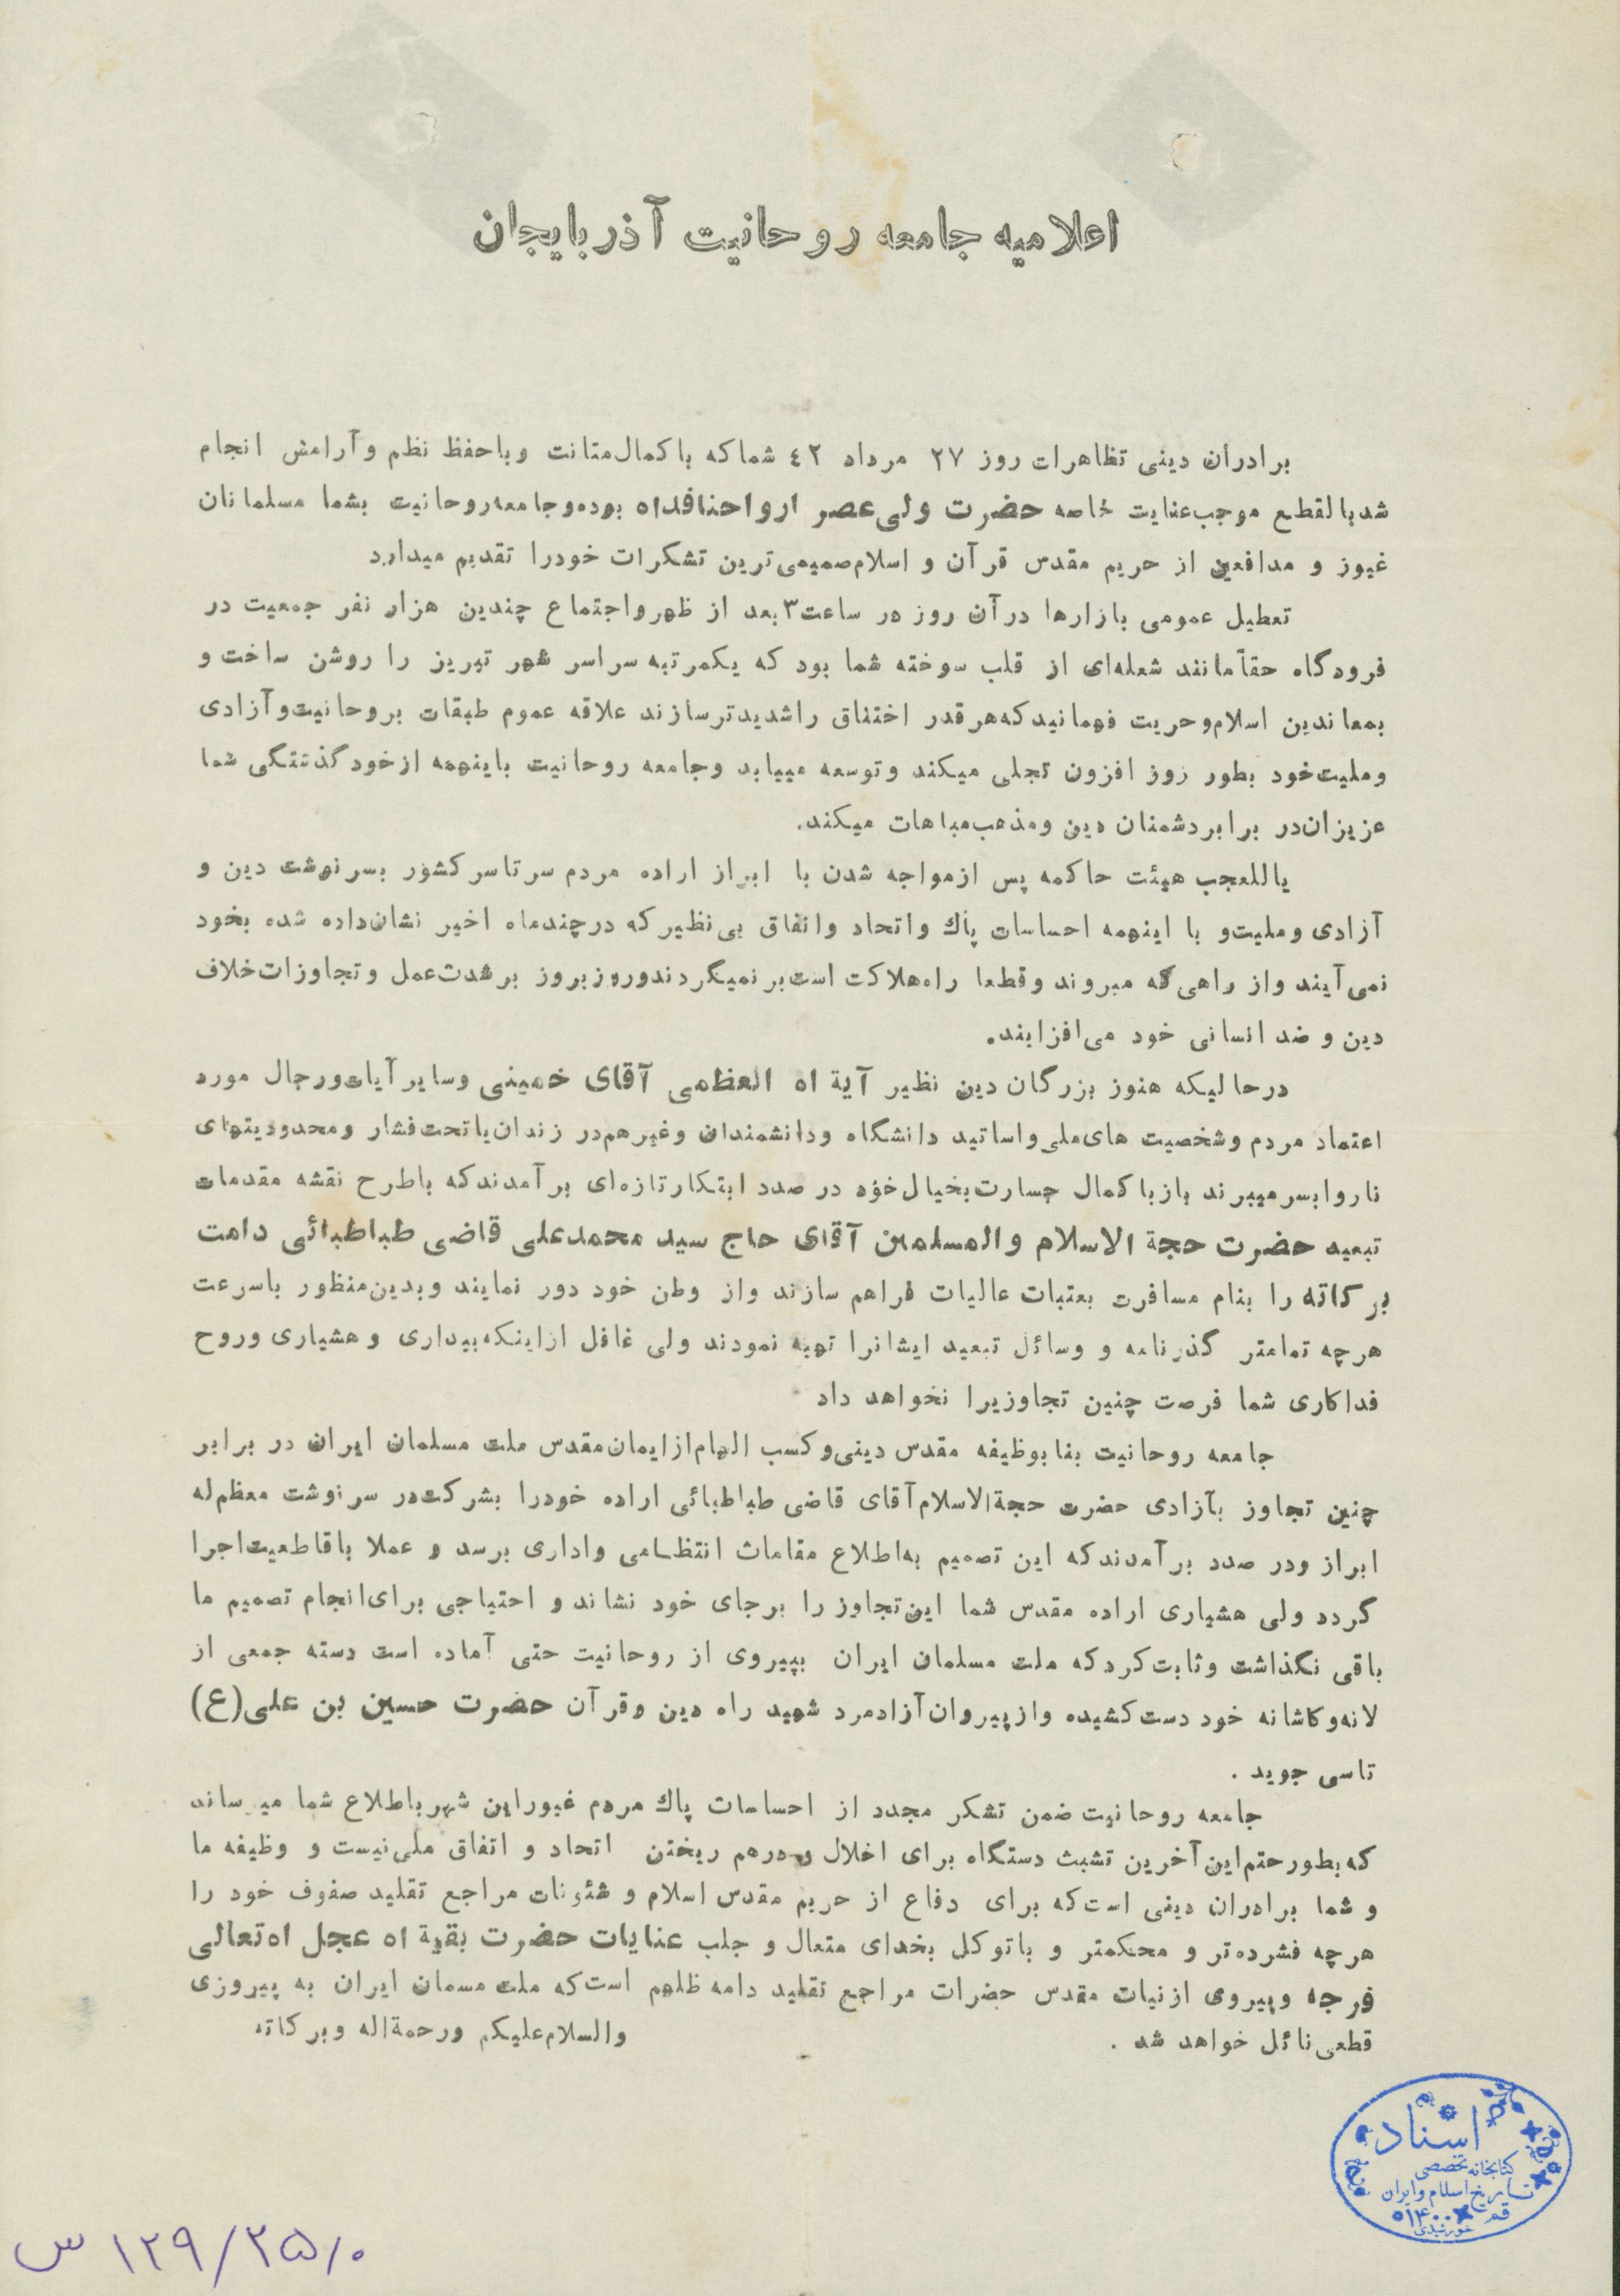 اعلامیه جامعه روحانیت آذربایجان
برادران دینی تظاهرات روز ۲۷ مرداد ٤٢ شما که با کمال متانت و با حفظ نظم و آرامش انجام
شد بالقطع موجب عنایت خاصه حضرت ولی عصر ارواحنا فداه بوده و جامعه روحانیت بشما مسلمانان
غیور و مدافعین از حریم مقدس قرآن و اسلام صمیمی ترین تشکرات خود را تقدیم میدارد
تعطیل عمومی بازارها در آن روز در ساعت ۳ بعد از ظهر و اجتماع چندین هزار نفر جمعیت در
فرودگاه حقاً مانند شعله‌ای از قلب سوخته شما بود که یکمرتبه سراسر شهر تبریز را روشن ساخت و
بمعاندین اسلام و حریت فهمانید که هر قدر اختناق را شدیدتر سازند علاقه عموم طبقات بروحانیت و آزادی
و ملیت خود بطور روز افزون تجلی میکند و توسعه مییابد و جامعه روحانیت باینهمه از خود گذشتگی شما
عزیزان در برابر دشمنان دین و مذهب مباهات میکند.
یاللعجب هیئت حاکمه پس از مواجه شدن با ابراز اراده مردم سرتاسر کشور بسرنوشت دین و
آزادی و ملیت و با اینهمه احساسات پاك و اتحاد و اتفاق بی نظیر که در چند ماه اخیر نشان داده شده بخود
نمی آیند و از راهی که میروند و قطعا راه هلاکت است بر نمیگردند و روز بروز بر شدت عمل و تجاوزات خلاف
دین و ضد انسانی خود می افزایند.
در حالیکه هنوز بزرگان دین نظیر آیة اه العظمی آقای خمینی و سایر آیات و رجال مورد
اعتماد مردم و شخصیت های ملی و اساتید دانشگاه و دانشمندان و غیرهم در زندان یا تحت فشار و محدودیتهای
ناروا بسر میبرند باز با کمال جسارت بخیال خود در صدد ابتکار تازه‌ای برآمدند که با طرح نقشه مقدمات
تبعید حضرت حجة الاسلام والمسلمین آقای حاج سید محمدعلی قاضی طباطبائی دامت
برکاته را بنام مسافرت بعتبات عالیات فراهم سازند و از وطن خود دور نمایند و بدین منظور با سرعت
هرچه تمامتر گذرنامه و وسائل تبعید ایشانرا تهیه نمودند ولی غافل از اینکه بیداری و هشیاری و روح
فداکاری شما فرصت چنین تجاوزیرا نخواهد داد
جامعه روحانیت بنا بوظیفه مقدس دینی و کسب الهام از ایمان مقدس ملت مسلمان ایران در برابر
چنین تجاوز بآزادی حضرت حجةالاسلام آقای قاضی طباطبائی اراده خود را بشرکت در سرنوشت معظم له
ابراز و در صدد برآمدند که این تصمیم به اطلاع مقامات انتظـامی و اداری برسد و عملا با قاطعیت اجرا
گردد ولی هشیاری اراده مقدس شما این تجاوز را برجای خود نشاند و احتیاجی برای انجام تصمیم ما
باقی نگذاشت و ثابت کرد که ملت مسلمان ایران بپیروی از روحانیت حتی آماده است دسته جمعی از
لانه و کاشانه خود دست کشیده و از پیروان آزاد مرد شهید راه دین و قرآن حضرت حسین بن علی (ع)
تاسی جوید .
جامعه روحانیت ضمن تشکر مجدد از احساسات پاك مردم غیور این شهر باطلاع شما میرساند
که بطور حتم این آخرین تشبث دستگاه برای اخلال و درهم ریختن اتحاد و اتفاق ملی نیست و وظیفه ما
و شما برادران دینی است که برای دفاع از حریم مقدس اسلام و شئونات مراجع تقلید صفوف خود را
هرچه فشرده‌تر و محکمتر و با توکل بخدای متعال و جلب عنایات حضرت بقیة اه عجل اه تعالی
فرجه و پیروی از نیات مقدس حضرات مراجع تقلید دامه ظلهم است که ملت مسمان ایران به پیروزی
قطعی نائل خواهد شد . والسلام علیکم ورحمةاله وبرکاته
اسناد
کتابخانه تخصصی
تاریخ اسلام و ایران
قم ۱۴۰۰
خورشیدی
۱۲۹/۲۵/۰ س